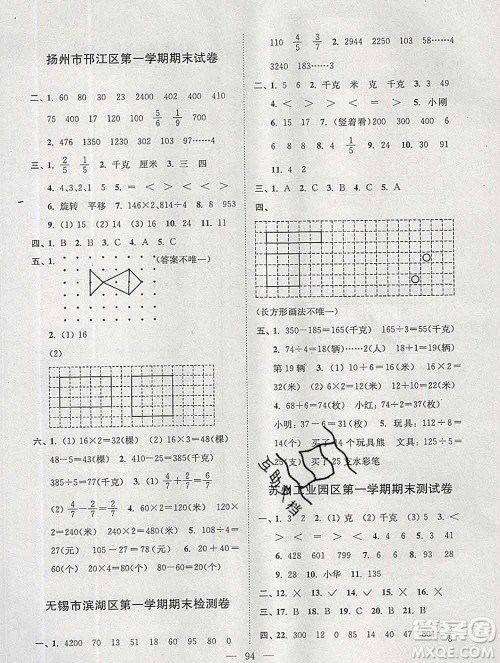 扬州市邗江区第一学期期末试卷
二、1. 60 80 30 21 600 260 400
75 400 117 900 100 5/6 1/9
2. 476 1350 1230 103 197……4
三、1. 2/5 1/5 2. 千克 厘米 3. 三 四
4. 4,3,2,1 5. = < > < > =
6. 旋转 平移 7. 146×2,814÷4 8. 8 953
9. (1) 15 (2) 14 (3) 13 10. 24 11. 11
四、1. B 2. B 3. C 4. A 5. C
五、1. (答案不唯一)
2. (1) 16
(2)
六、1. (1) 16×2=32(棵) (2) 16×3=48(棵)
2. 60×7=420(千克) 3. 410-25=385(千克)
385+385=770(千克) 4. (1) 4/7 2/7 4/7+2/7=6/7
(2) 4/7-2/7=2/7 5. 120×2=240(米) 6. 20×4=
80(米) 80+20=100(米) 7. 108÷4=
27(元) 90÷5=18(元) 27>18 8. 60÷3=
20(元) 6×10=60(元) 20+60<100
无锡市滨湖区第一学期期末检测卷
一、1. 4200 70 13 51 800 90 0
110 4/5 4/9 63 800 82 15 600 2. 66
3240 183 122……5
二、1. 千克 千克 克 2. 2 3 3. 400 49
4. < > > = < = 5. > > 6. 小刚
7. 60 8. (竖着看) 80 240 40 9. 三 400
10. 22 14 11. 3 5 12. 12 6 6 4
三、1. B 2. A 3. C 4. C 5. A
四、
(长方形画法不唯一)
五、1. 350-185=165(千克) 165÷3=55(千克)
2. 74÷4=18(辆)……2(人) 18+1=19(辆)
第19辆 3. (22+10)×2=64(米) 22+10=
32(米) 4. 60+8=68(枚) 小红:74÷2=
37(枚) 37-6=31(枚) 小明:31+6=
37(枚) 37>31(答案不唯一) 5. 玩具:112÷8=
14(个) 买了14个玩具熊 文具:200÷8=
25(支) 买了25支水彩笔
苏州工业园区第一学期期末测试卷
一、1. (1) 克 (2) 千克 (3) 克 2. (1) 3 5
(2) 1 3. < > > > < = 4. 1 3 5.
3 6. 601 299 7. 830 24 8. 30 30 9. 15
1/8 10. 小华 11. 134
二、12. ✕ 13. ✕ 14. ✕ 15. ✓ 16. ✓
三、17. B 18. A 19. A 20. C 21. C
四、22. 300 15 44 800 47 0
94